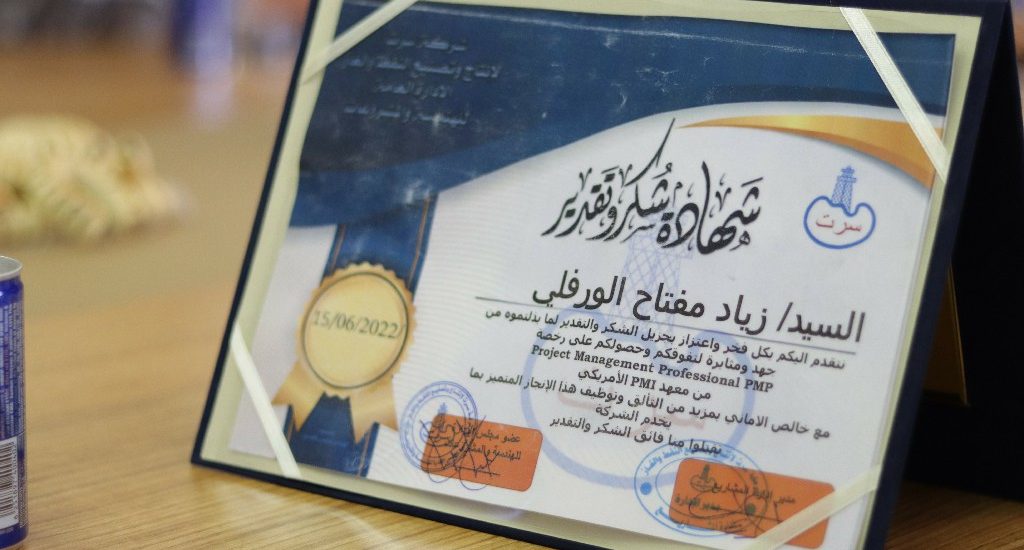 شركة سرت
لانتاج وتصنيع النفط والغاز
الادارة العامة
للهندسة والمشروعات
شهادة شكر وتقدير
سرت
السيد/ زياد مفتاح الورفلي
15/06/2022
نتقدم اليكم بكل فخر واعتزاز بجزيل الشكر والتقدير لما بذلتموه من
جهد ومثابرة لتفوقكم وحصولكم على رخصة
Project Management Professional PMP
من معهد PMI الأمريكي
مع خالص الاماني بمزيد من التألق وتوظيف هذا الإنجاز المتميز بما
يخدم الشركة
منا فائق الشكر والتقدير
عضو مجلس
للهندسة
مدير